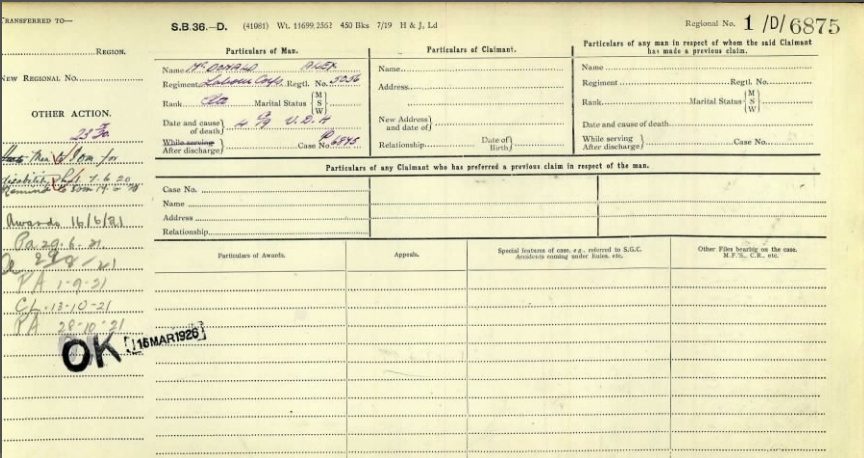 TRANSFERRED TO—
REGION.
NEW REGIONAL NO.
OTHER ACTION.
Awards 16/6/21
PA 29.6.21
PA 1-9-21
CL. 13-10-21
PA 28-10-21
OK
15 MAR 1926
S.B. 36.—D. (41081) Wt. 11699, 2562 450 Bks 7/19 H & J, Ld
Regional No. 1/D/6875
Particulars of Man.
Name McDonald Alex
Regiment Labour Corps Regtl. No.
Rank Marital Status { M S W }
Date and cause of death } V.D.H
While serving
After discharge } Case No.
Particulars of Claimant.
Name
Address
New Address and date of }
Relationship Date of Birth }
Particulars of any man in respect of whom the said Claimant
has made a previous claim.
Name
Regiment Regtl. No.
Rank Marital Status { M S W }
Date and cause of death
While serving
After discharge } Case No.
Particulars of any Claimant who has preferred a previous claim in respect of the man.
Case No.
Name
Address
Relationship
Particulars of Awards.
Appeals.
Special features of case, e.g., referred to S.G.C.
Accidents coming under Rules, etc.
Other Files bearing on the case.
M.F.'S., C.R., etc.